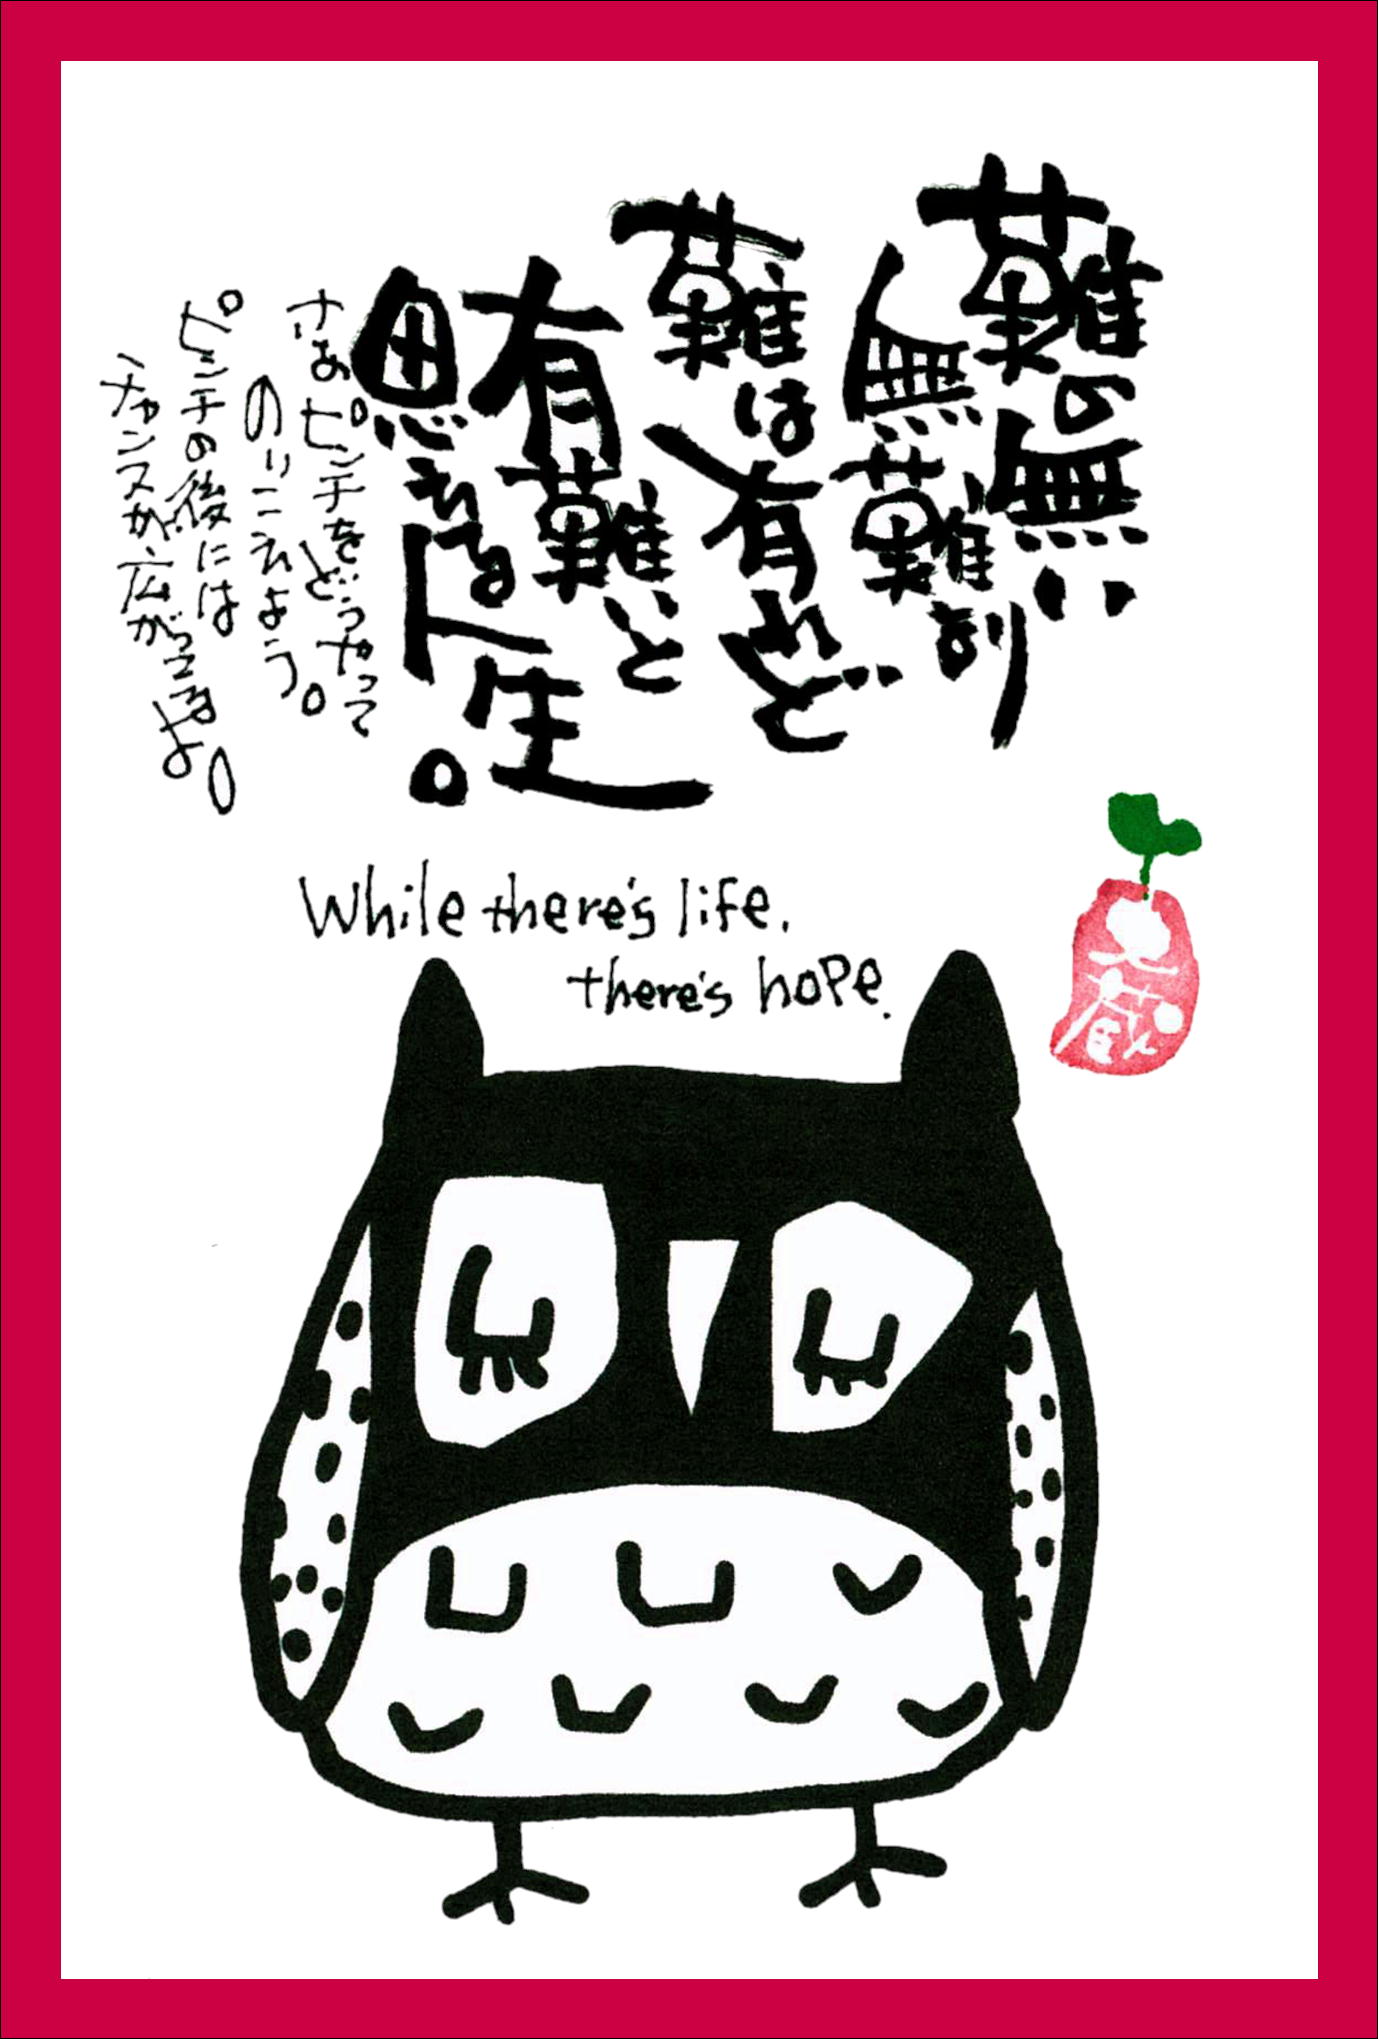 難の無い
無難より
難は有れど
有難いと
思える人生。
さあピンチをどうやって
のりこえよう。
ピンチの後には
チャンスが広がってるよ。
While there's life,
there's hope.